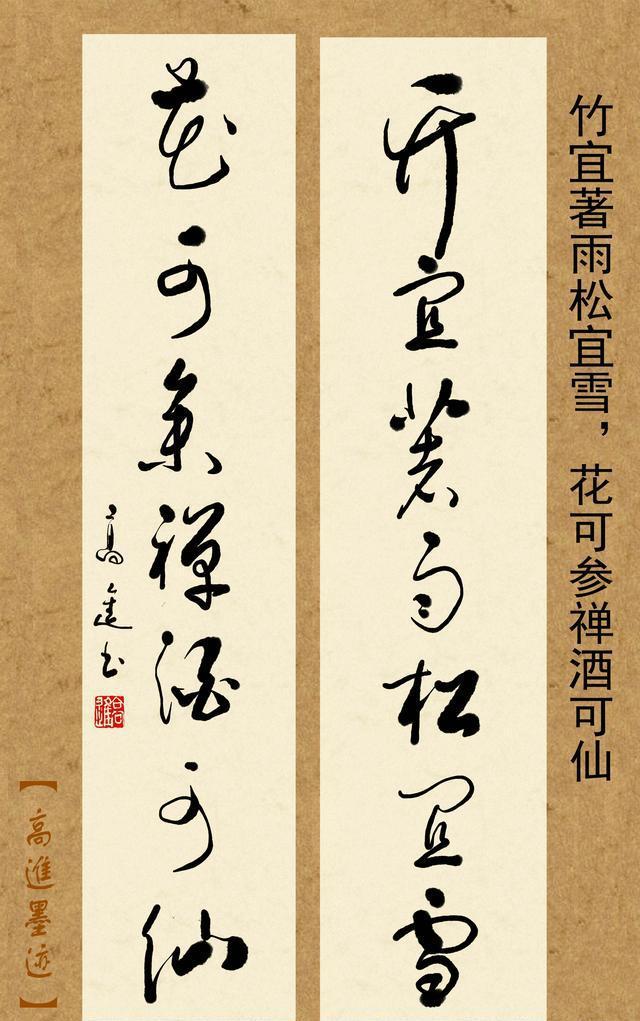 竹宜著雨松宜雪，花可参禅酒可仙
竹宜著雨松宜雪
花可参禅酒可仙
高進书
【高進墨迹】